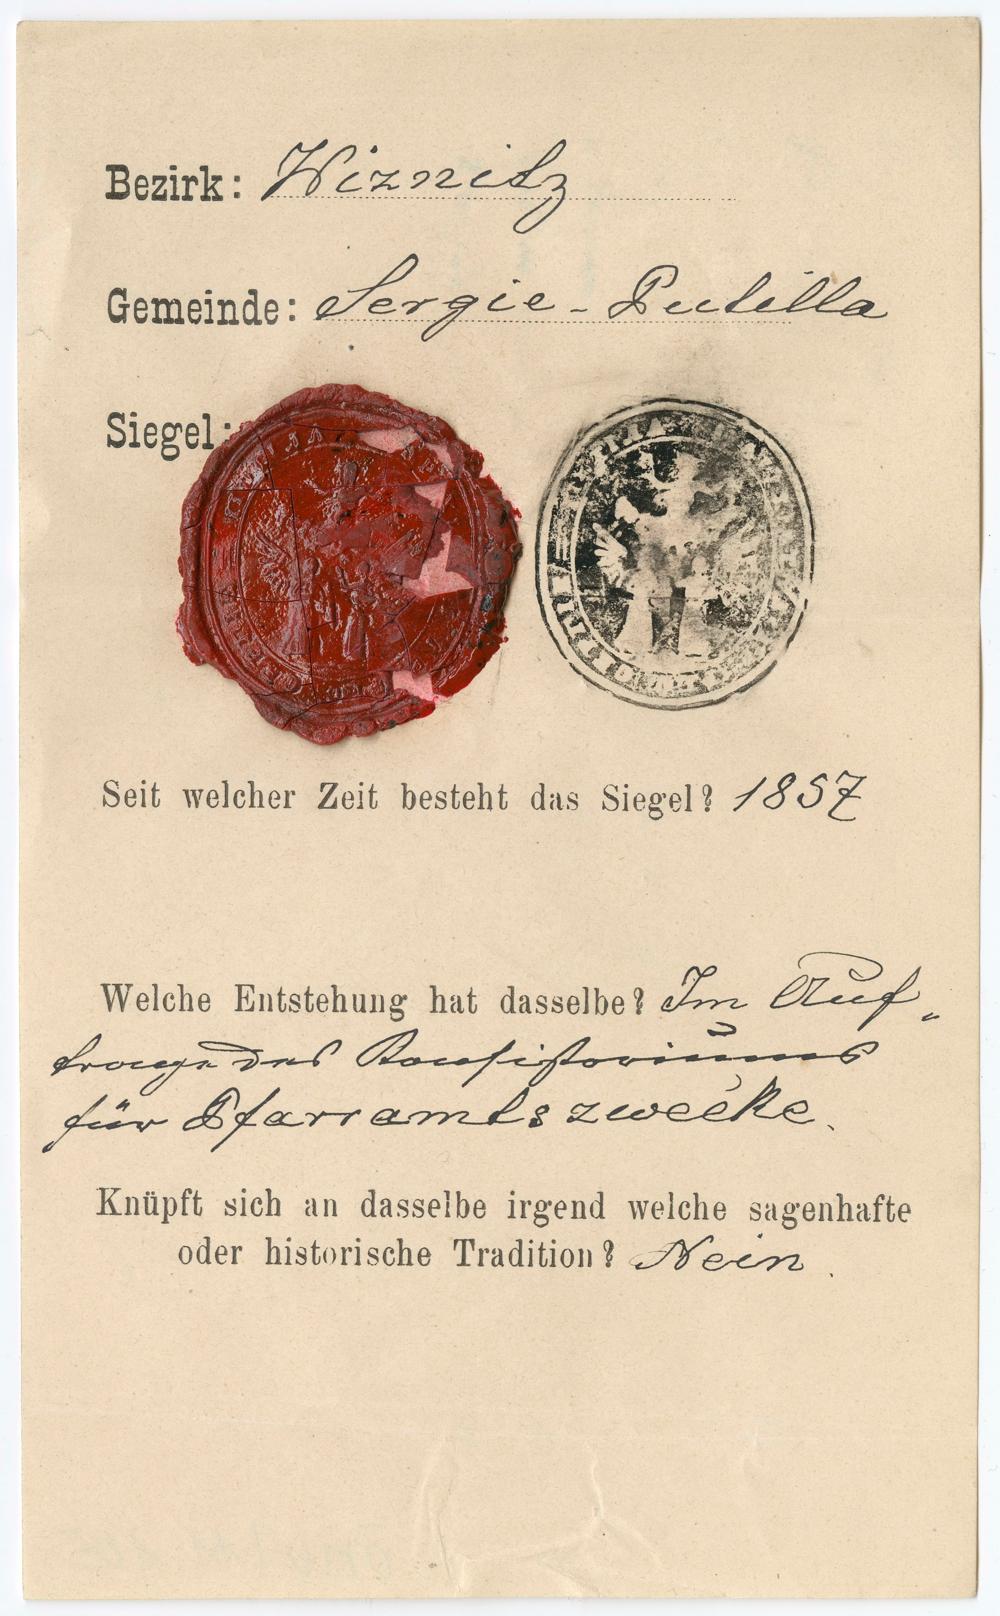 Bezirk: Wiznitz
Gemeinde: Sergie-Putilla
Siegel:
Seit welcher Zeit besteht das Siegel? 1857
Welche Entstehung hat dasselbe? Im Auf„
trage des Konsistoriums
für Pfarramtszwecke.
Knüpft sich an dasselbe irgend welche sagenhafte
oder historische Tradition? Nein.